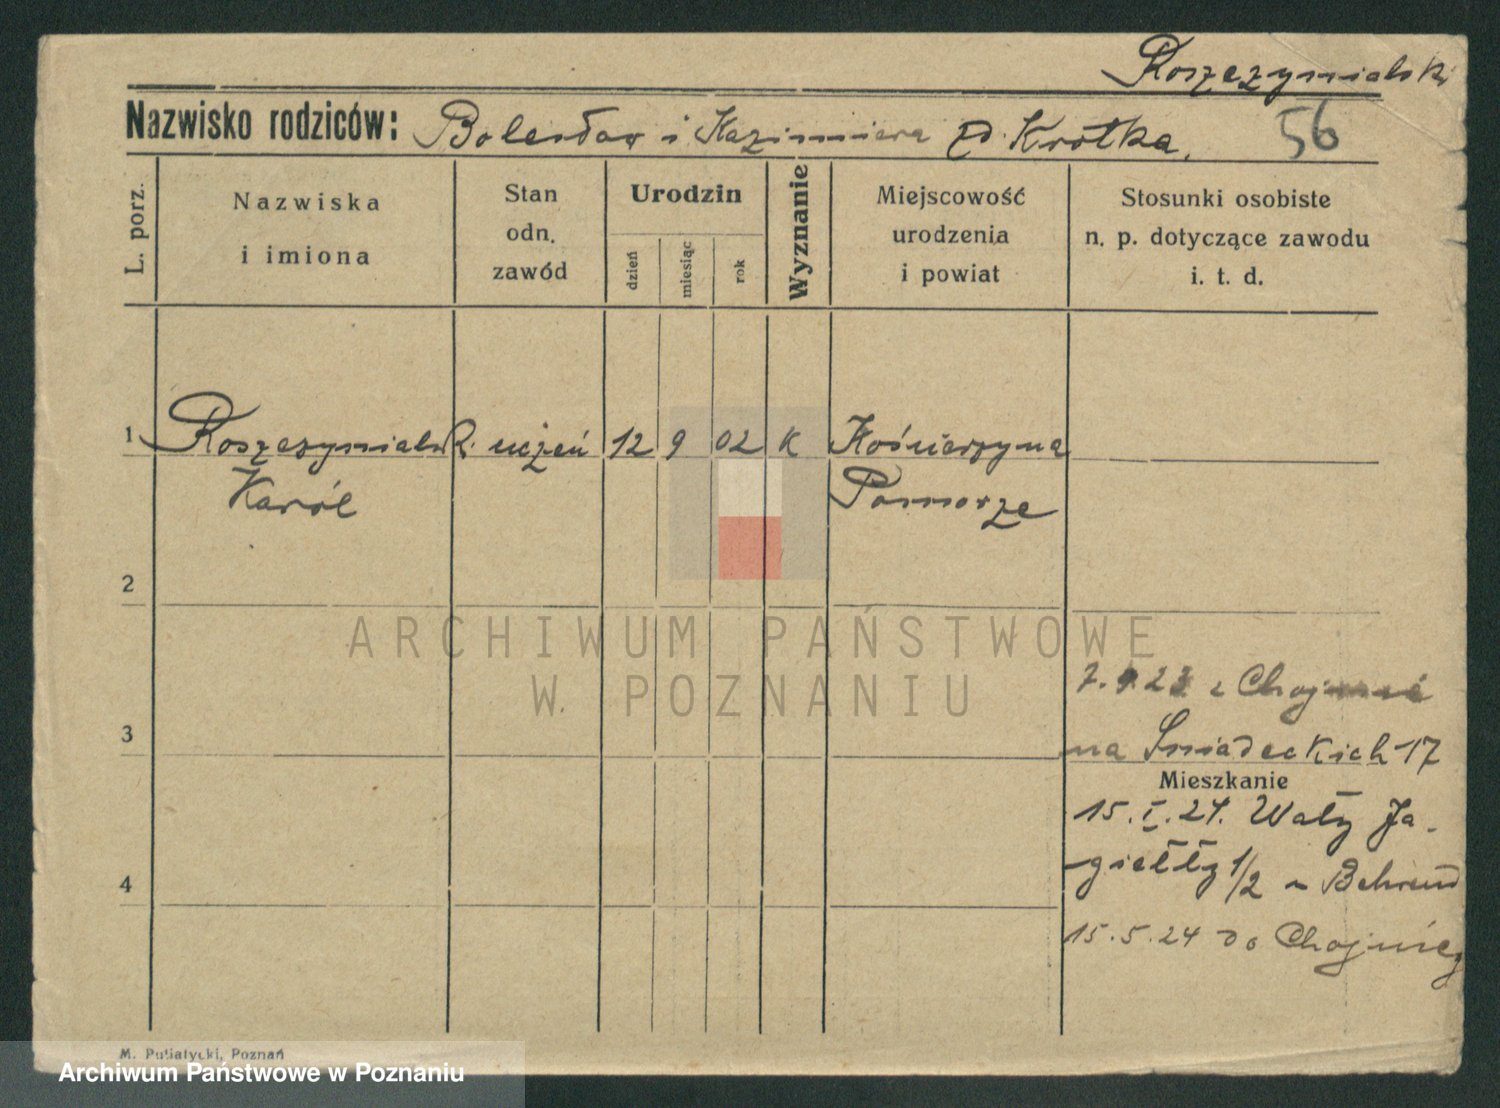 Roszczynialski
Nazwisko rodziców: Bolesław i Kazimiera zd. Krótka.
56
L. porz.
Nazwiska
i imiona
Stan
odn.
zawód
Urodzin
dzień
miesiąc
rok
Wyznanie
Miejscowość
urodzenia
i powiat
Stosunki osobiste
n. p. dotyczące zawodu
i. t. d.
1 Roszczynialski uczeń 12 9 02 K Kościerzyna
Karól Pomorze
2
ARCHIWUM PAŃSTWOWE
W POZNANIU
7.9.23 z Chojnic
3 na Śniadeckich 17
Mieszkanie
15.I.24. Wały Ja-
giełły 1/2 u Behrend
4
15.5.24 do Chojnic
M. Putiatycki, Poznań
Archiwum Państwowe w Poznaniu